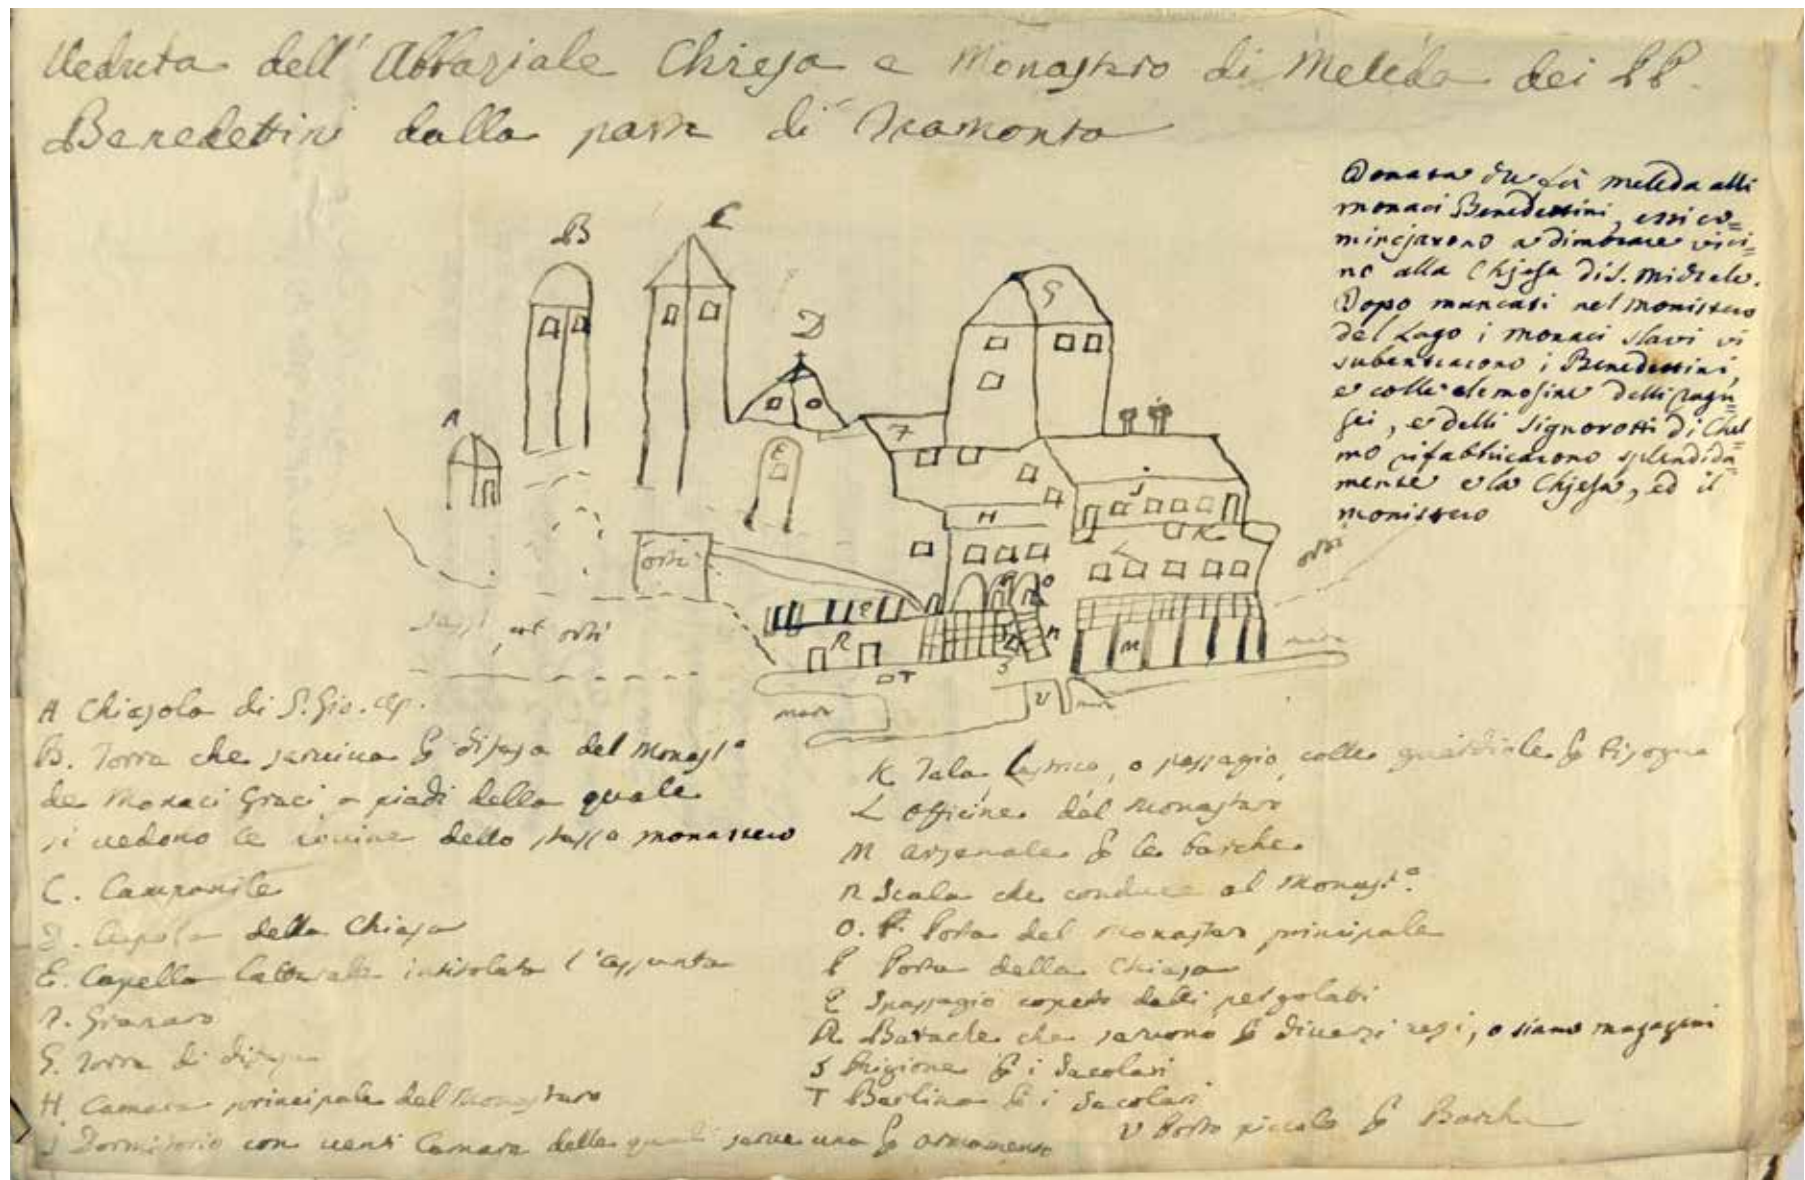 Veduta dell' Abbaziale Chiesa e Monastero di Meleda dei PP.
Benedettini dalla parte di Tramonto
Donata fu
meleda alli
monaci Benedettini, essi co=
minciarono a dimorare vici=
no alla Chjesa di S. Michele.
Dopo mancati nel monistero
del Lago i monaci slavi vi
subentrarono i Benedettini,
e colle elemosine delli ragu=
sei, e delli signorotti di Chel=
mo rifabbricarono splendida=
mente e la Chjesa, ed il
monistero
B
C
D
G
A
E
F
J
H
K
L
orti
orti
orti
O
R
N
M
S
T
mare
V
mare
A Chiesola di S. Gio.
B. Torre che serviva p difesa del Monast.o
de Monaci Greci a piedi della quale
si vedono le rovine dello stesso monastero
C. Campanile
D. Cupola della Chiesa
E. Capella laterale intitolata l'Assunta
F. Granaro
G. Torre di difesa
H. Camere principale del Monastero
J Dormitorio con venti Camere delle quali serve una p
K
o passagio colle
p bisogno
L Officine del Monastero
M Arsenale p le barche
N Scala che conduce al Monast.o
O. P. Porta del Monastero principale
P Porta della Chiesa
Q Spassagio coperto delli pergolati
R Barache che servono p diversi usi, o siano magazini
S Prigione p i Secolari
T Berlina p i Secolari
V Porto piccolo p Barche